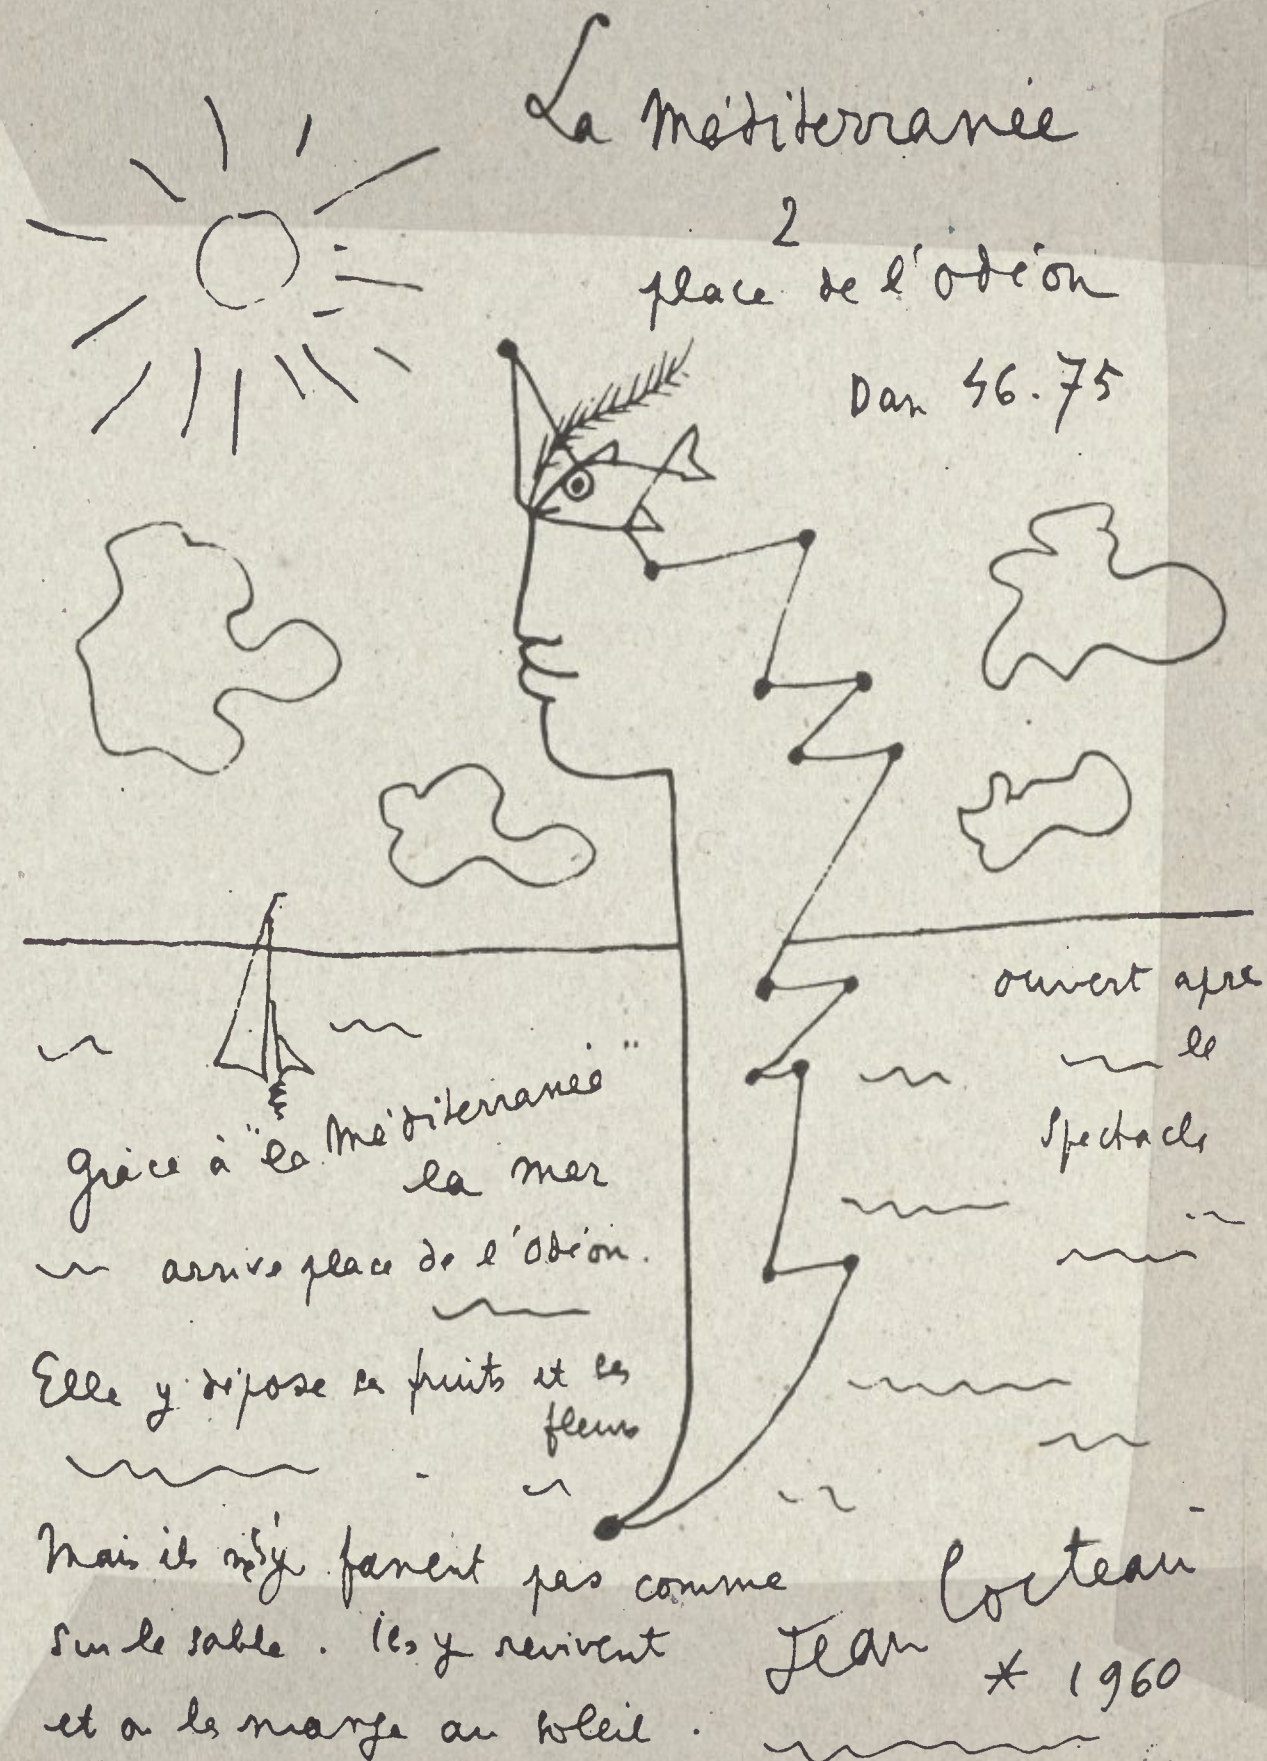 La Méditerranée
2
place de l'odéon
Dan 46.75
ouvert après
le
spectacle
Grâce à "la Méditerranée"
la mer
arrive place de l'Odéon.
Elle y dépose ses fruits et ses
fleurs
Mais ils n's'y fanent pas comme
sur le sable. ils y revivent
et on les mange au soleil.
Jean Cocteau
* 1960